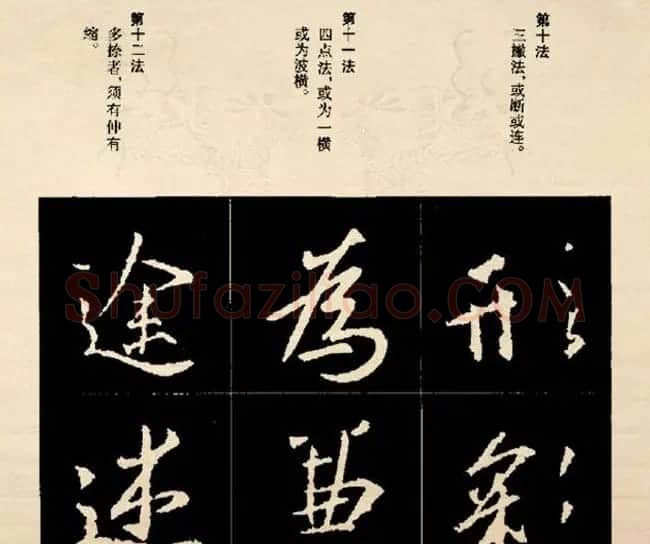 第十法
三撇法，或断或连。
第十一法
四点法，或为一横
或为波横。
第十二法
多捺者，须有伸有
缩。
形
彩
為
途
述
Shufaziliao.COM